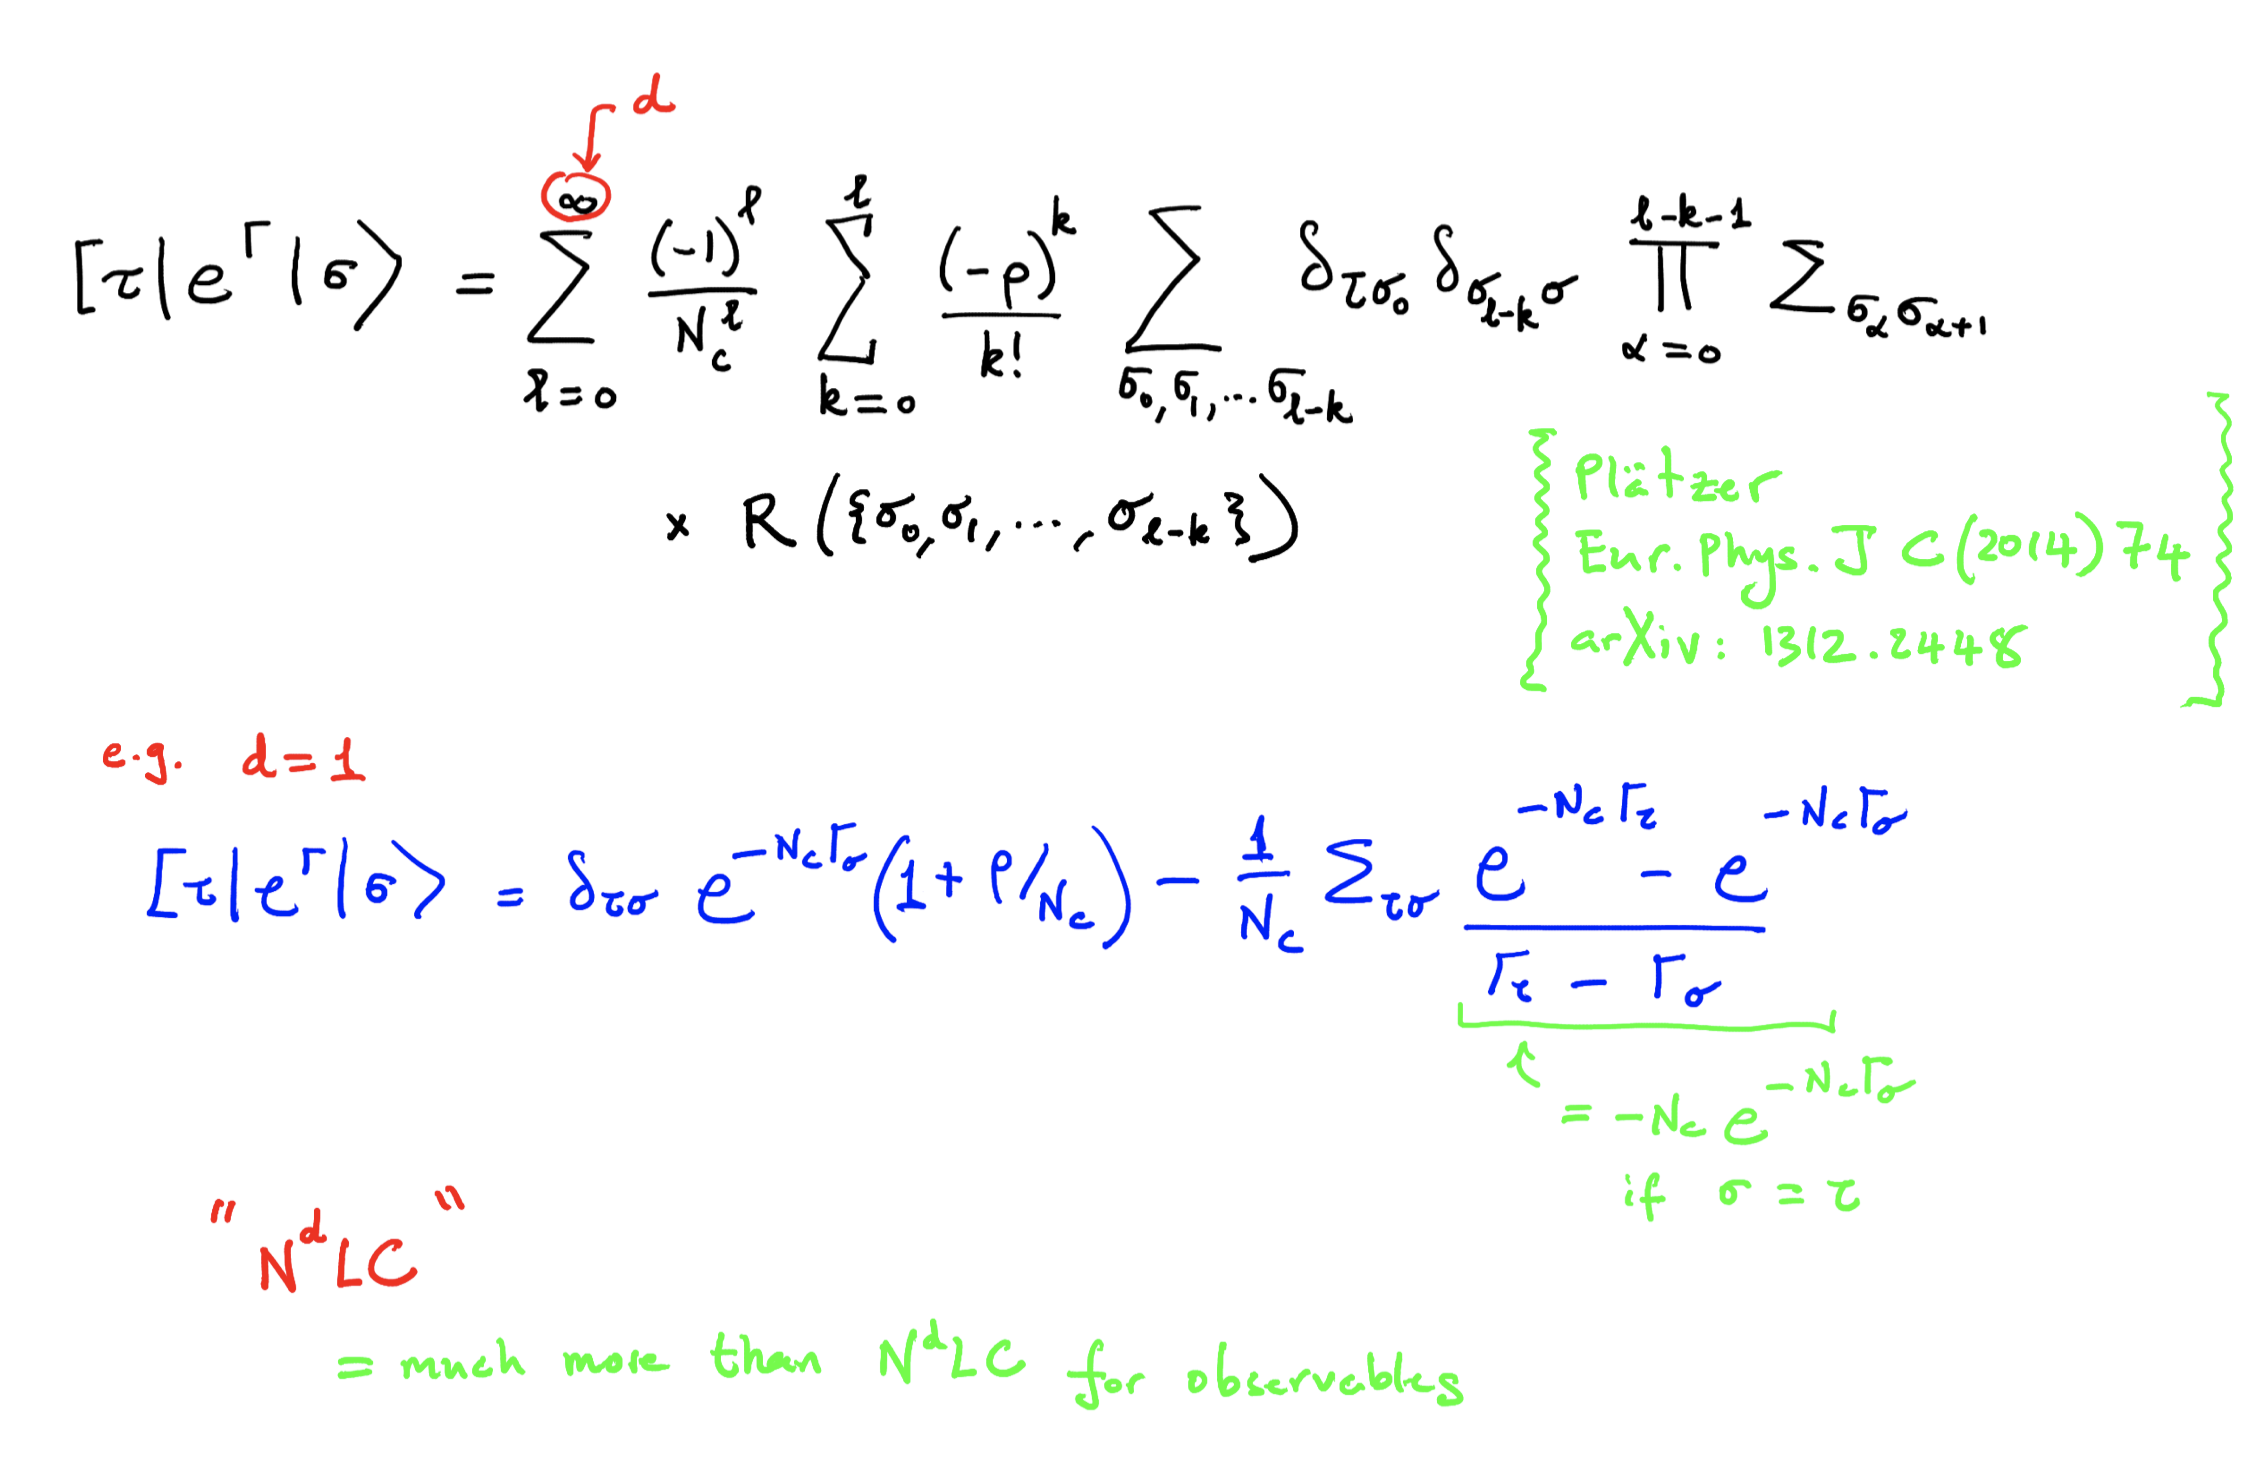 d
[τ|e^Γ|σ⟩ = ∑_{l=0}^{∞} (-1)^l / N_c^l ∑_{k=0}^{l} (-ρ)^k / k! ∑_{σ_0,σ_1,...σ_{l-k}} δ_{τσ_0} δ_{σ_{l-k}σ} ∏_{α=0}^{l-k-1} Σ_{σ_α σ_{α+1}}
× R({σ_0,σ_1,...,σ_{l-k}})
Plätzer
Eur. Phys. J C (2014) 74
arXiv: 1312.2448
e.g. d=1
[τ|e^Γ|σ⟩ = δ_{τσ} e^{-N_cΓ_σ} (1+ρ/N_c) - 1/N_c Σ_{τσ} (e^{-N_cΓ_τ} - e^{-N_cΓ_σ}) / (Γ_τ - Γ_σ)
= -N_c e^{-N_cΓ_σ}
if σ = τ
"N^dLC"
= much more than N^dLC for observables